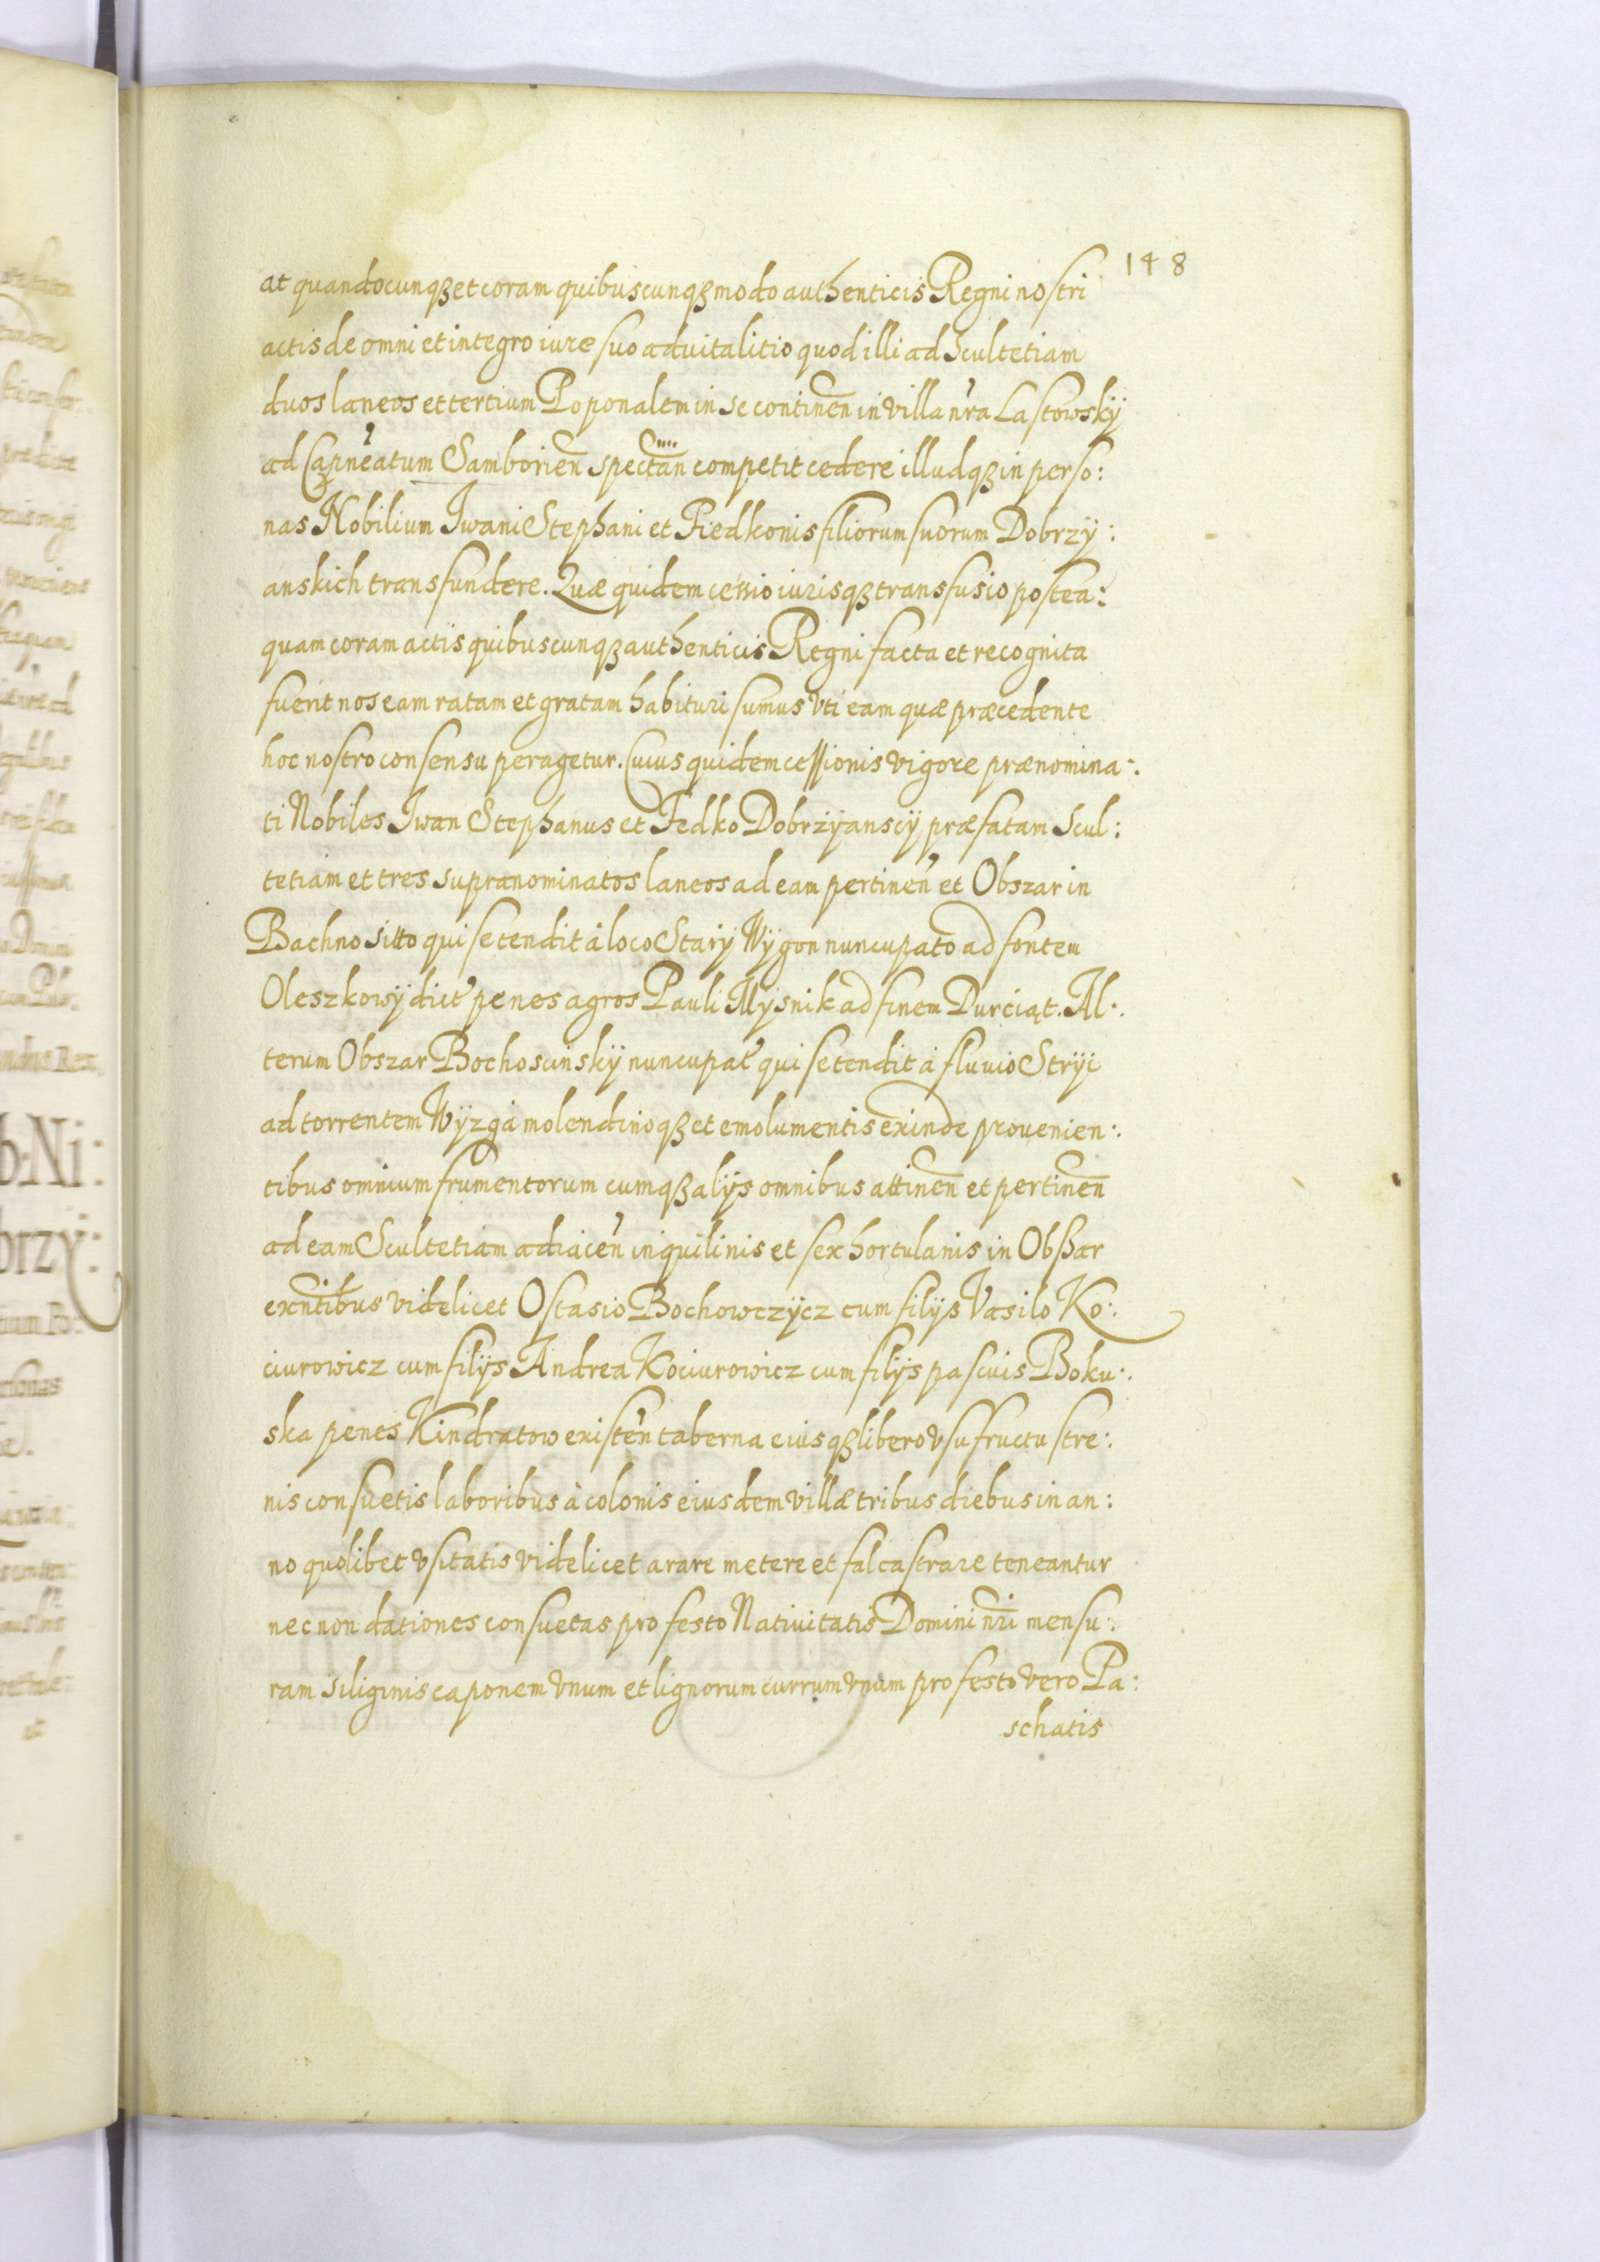 148
at quandocunqȝ et coram quibuscunqȝ modo authenticis Regni nostri
actis de omni et integro iure suo aduitalitio quod illi ad Scultetiam
duos laneos et tertium Poponalem in se continen̄ in villa nr̄a Lastowskÿ
ad Capneatum Samborien̄ spectan̄ competit cedere illudqȝ in perso:
nas Nobilium Iwani Stephani et Fiedkonis filiorum suorum Dobrzÿ:
anskich transfundere. Quæ quidem cessio iurisqȝ transfusio postea:
quam coram actis quibuscunqȝ authenticis Regni facta et recognita
fuerit nos eam ratam et gratam habituri sumus vti eam quæ præcedente
hoc nostro consensu peragetur. Cuius quidem cessionis vigore prænomina:
ti Nobiles Iwan Stephanus et Fedko Dobrzÿanscÿ præfatam Scul:
tetiam et tres supranominatos laneos ad eam pertinen̄ et Obszar in
Bachno sitto qui se tendit à loco Starÿ Wÿgon nuncupato ad fontem
Oleszkowÿ dict penes agros Pauli Mÿsnik ad finem Durciąt. Al:
terum Obszar Bochoscinskÿ nuncupat qui se tendit à fluuio Strÿi
ad torrentem Wÿzgà molendinoqȝ et emolumentis exinde prouenien:
tibus omnium frumentorum cumqȝ alÿs omnibus attinen̄ et pertinen̄
ad eam Scultetiam adiacen̄ inquilinis et sex hortulanis in Obßar
exn̄tibus videlicet Ostasio Bochowczÿcz cum filÿs Vasilo Ko:
ciurowicz cum filÿs Andrea Kociurowicz cum filÿs pascuis Boku:
ska penes Kindratow existen̄ taberna eiusqȝ libero vsufructu stre:
nis consuetis laboribus à colonis eiusdem villæ tribus diebus in an:
no quolibet vsitatis videlicet arare metere et falcastrare teneantur
necnon dationes consuetas pro festo Natiuitatis Domini nr̄i mensu:
ram siliginis caponem vnum et lignorum currum vnum pro festo vero Pa:
schatis